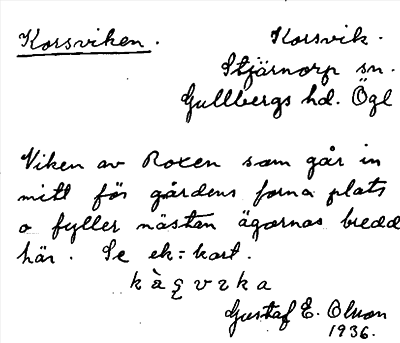 Korsviken. Korsvik.
Stjärnorp sn.
Gullbergs hd. Ögl
Viken av Roxen som går in
mitt för gårdens forna plats
o fyller nästan ägornas bredd
här. Se ek=kart.
Gustaf E. Olson
1936.